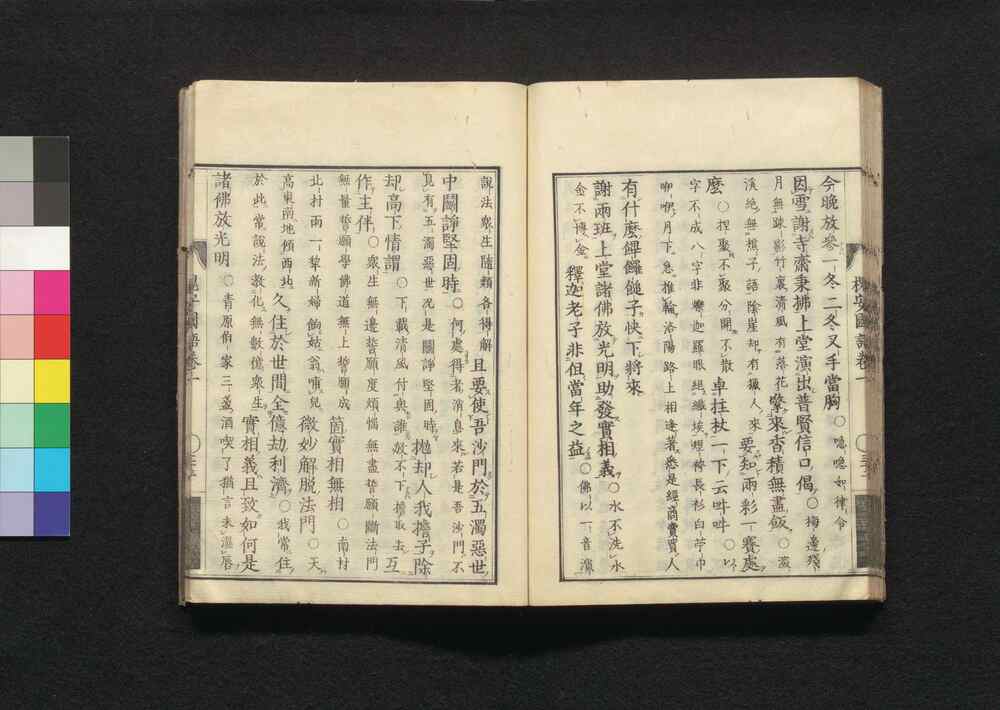 今晩放參一冬二冬叉手當胸○噫噫如律令
因雪謝寺齋秉拂上堂演出普賢信口偈○梅邊殘
月無疎影竹裏清風有落花擎來香積無盡飯○澱
溪絶無樵子語陰崖却有獵人來要知兩彩一賽處
麽○捏聚不聚分開不散卓拄杖一下云吽吽○以
字不成八字非釋迦羅眼組織埃哩停長衫白苧巾
咿咿月下急推輪洛陽路上相逢著悉是經商賣買人
有什麽饆饠䭔子快下將來
謝兩班上堂諸佛放光明助發實相義○水不洗水
金不博金釋迦老子非但當年之益○佛以一音演
說法衆生隨類各得解且要使吾沙門於五濁惡世
中鬪諍堅固時○何處得者消息來若是吾沙門不
見有五濁惡世況是鬪諍堅固時拋却人我擔子除
却高下情謂○下載清風付與誰放不下擔取去互
作主伴○衆生無邊誓願度煩惱無盡誓願斷法門
無量誓願學佛道無上誓願成箇實相無相○南村
北村雨一犂新婦餉姑翁哺兒微妙解脫法門○天
高東南地傾西北久住於世間全億劫利濟○我常住
於此常說法教化無數億衆生實相義且致如何是
諸佛放光明○青原伯家三盞酒喫了猶言未濕唇